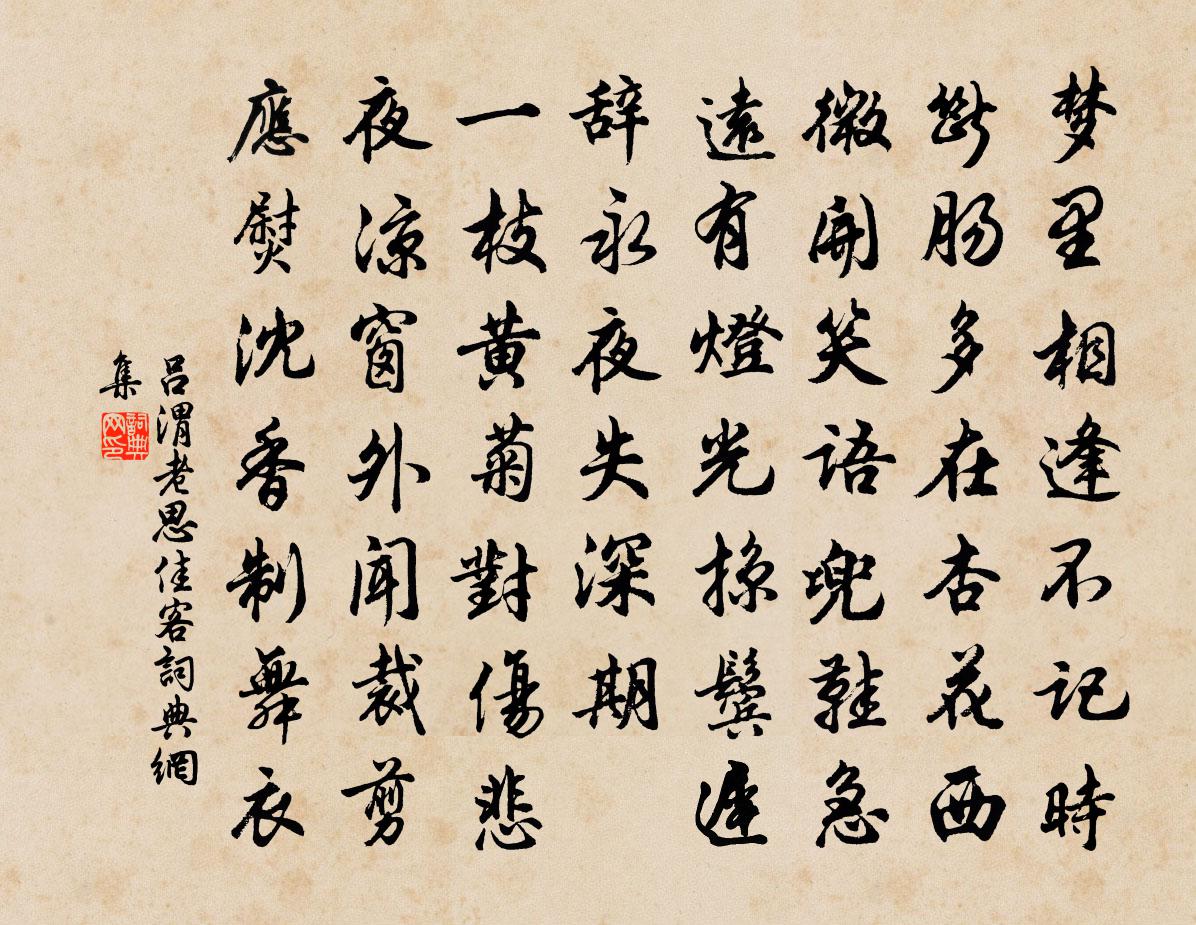 梦里相逢不记時
斷肠多在杏花西
微開笑語兜鞋急
遠有燈光掠鬓遲
辞永夜失深期
一枝黄菊對傷悲
夜凉窗外聞裁剪
應熨沈香制舞衣
吕渭老思佳客詞典網
集
詞典网印